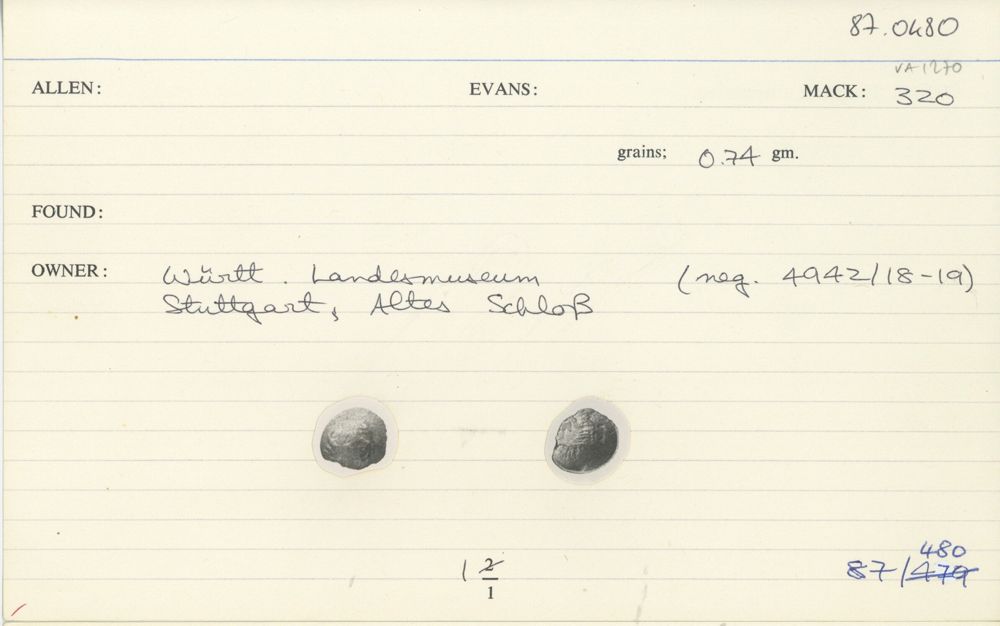 87.0480
VA 1270
ALLEN: EVANS: MACK: 320
grains; 0.74 gm.
FOUND:
OWNER: Württ. Landesmuseum (neg. 4942/18-19)
Stuttgart, Altes Schloß
1 2
1
480
87/479